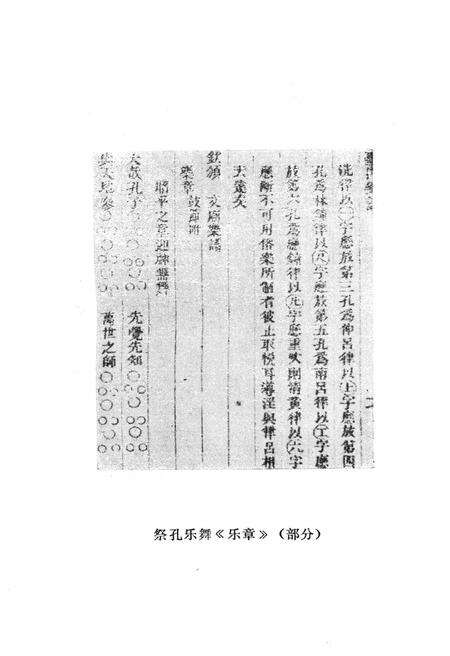 洗律以一字應放第三孔為仲呂律以上字應放第四
孔為林鐘律以尺字應放第五孔為南呂律以工字應
放第六孔為應鐘律以凡字應重吹則清黃律以六字
應斷不可用俗樂所
者彼止取悅耳導淫與律呂相
大
欽頒 文廟樂譜
樂章
昭平之章迎神
大哉孔子 先覺先知
與天地參 萬世之師
祭孔乐舞《乐章》（部分）